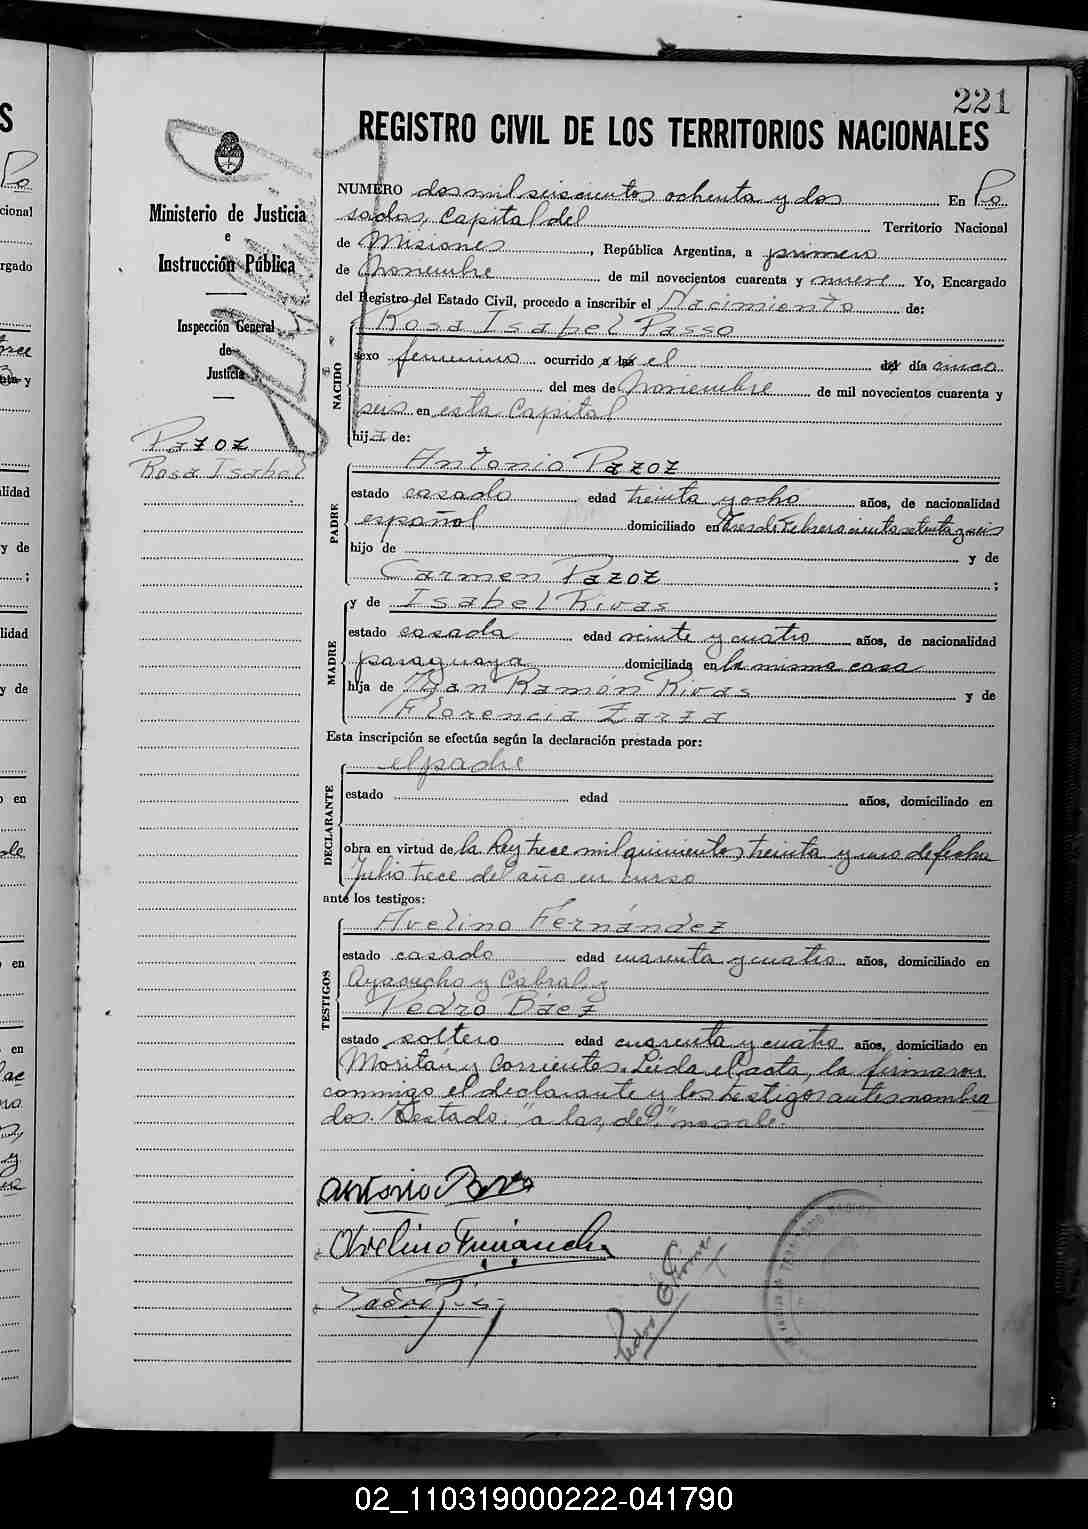 221
REGISTRO CIVIL DE LOS TERRITORIOS NACIONALES
Ministerio de Justicia
e
Instrucción Pública
Inspección General
de
Justicia
Pazoz
Rosa Isabel
NUMERO dos mil seiscientos ochenta y dos En Po
sadas, Capital del Territorio Nacional
de Misiones, República Argentina, a primero
de Noviembre de mil novecientos cuarenta y nueve Yo, Encargado
del Registro del Estado Civil, procedo a inscribir el Nacimiento de:
NACIDO
Rosa Isabel Passo
sexo femenino ocurrido a las el del día cinco
del mes de Noviembre de mil novecientos cuarenta y
seis en esta Capital
hija de:
PADRE
Antonio Pazoz
estado casado edad treinta y ocho años, de nacionalidad
español domiciliado en tres de Febrero ciento setenta y seis
hijo de y de
Carmen Pazoz ;
MADRE
y de Isabel Rivas
estado casada edad veinte y cuatro años, de nacionalidad
paraguaya domiciliada en la misma casa
hija de Juan Ramón Rivas y de
Florencia Zarza
Esta inscripción se efectúa según la declaración prestada por:
DECLARANTE
el padre
estado edad años, domiciliado en
obra en virtud de la Ley trece mil quinientos treinta y uno de fecha
Julio trece del año en curso
ante los testigos:
TESTIGOS
Avelino Fernández
estado casado edad cuarenta y cuatro años, domiciliado en
Ayacucho y Cabral, y
Pedro Báez
estado soltero edad cuarenta y cuatro años, domiciliado en
Moritán y Corrientes. Leída el acta, la firmaron
conmigo el declarante y los testigos antes nombra
dos. Testado: "a las, del," no vale.
Antonio
Avelino Fernandez
Pedro
02_110319000222-041790